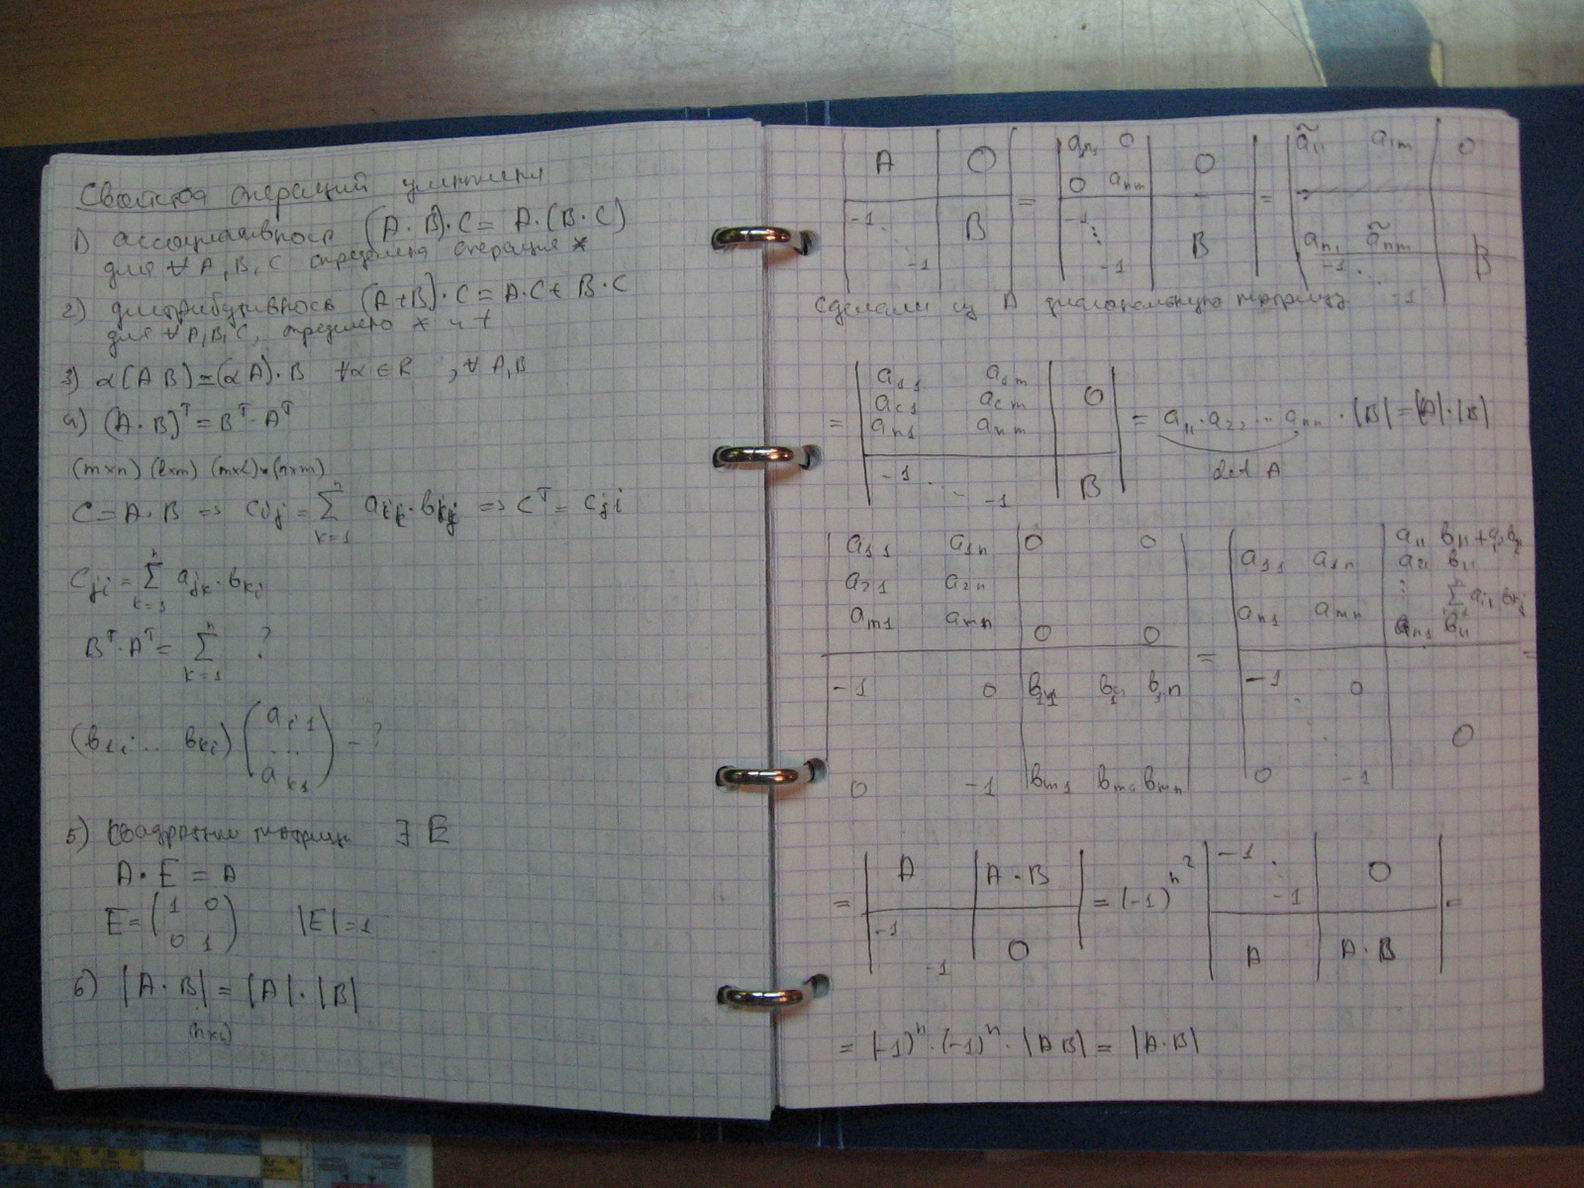 Свойства операций умножения
1) ассоциативность (A·B)·C = A·(B·C)
для ∀ A, B, C определена операция *
2) дистрибутивность (A+B)·C = A·C + B·C
для ∀ A, B, C, определено * и +
3) α(AB) = (αA)·B ∀α ∈ R , ∀ A,B
4) (A·B)^T = B^T·A^T
C = A·B => Cij = Σ_{k=1}^{n} aik·bkj => C^T = Cji
Cji = Σ_{k=1}^{n} ajk·bki
B^T·A^T = Σ_{k=1}^{n} ?
(b1i ... bki) (ai1 ... ak1) - ?
5) Квадратные матрицы ∃ E
A·E = A
E = (1 0
0 1) |E| = 1
6) |A·B| = |A|·|B|
| A | O | = | an1 0 | O | = | ã11 a1m | 0 |
0 anm
| -1 ... -1 | B | | -1 ⋮ -1 | B | an1 ãnm
-1 ... -1 B
сделали из A диагональную матрицу
= | a11 a1m | 0 |
ac1 acm
an1 anm = a11·a22 ... ann · |B| = |A|·|B|
det A
-1 ... -1 | B |
| a11 a1n | 0 0 | = | a11 a1n | a11 b11 +
a21 a2n a21 b11
am1 amn | 0 0 | an1 amn | an1 b11
-1 0 | b11 b1n | -1 0
0
0 -1 | bm1 bmn | 0 -1
= | A | A·B | = (-1)^n² | -1 ... -1 | O | =
| -1 -1 | O | | A | A·B |
= (-1)^n·(-1)^n·|AB| = |A·B|